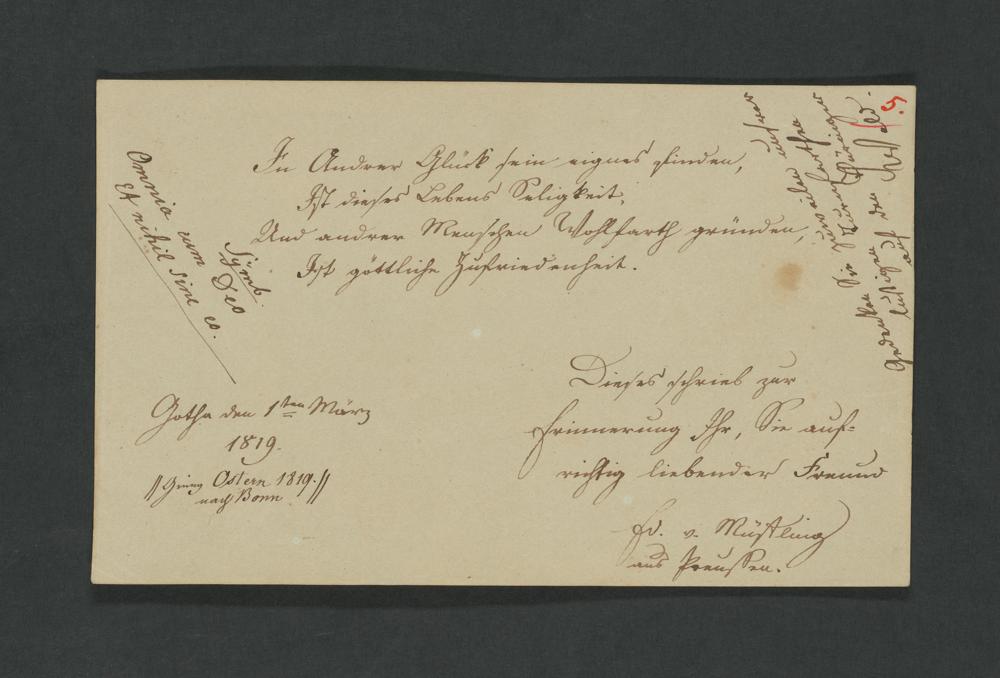 In Andrer Glück sein eignes finden,
Ist dieses Lebens Seligkeit,
Und andrer Menschen Wohlfarth gründen,
Ist göttliche Zufriedenheit.
Symb.
Omnia cum Deo
Et nihil sine eo.
Gotha den 1sten März
1819.
//Ging Ostern 1819.//
nach Bonn
Dieses schrieb zur
Erinnerung Ihr, Sie auf-
richtig liebender Freund
Ed. v. Müffling
aus Preußen.
Gedenken Sie zuweilen unsrer
auf den
5.